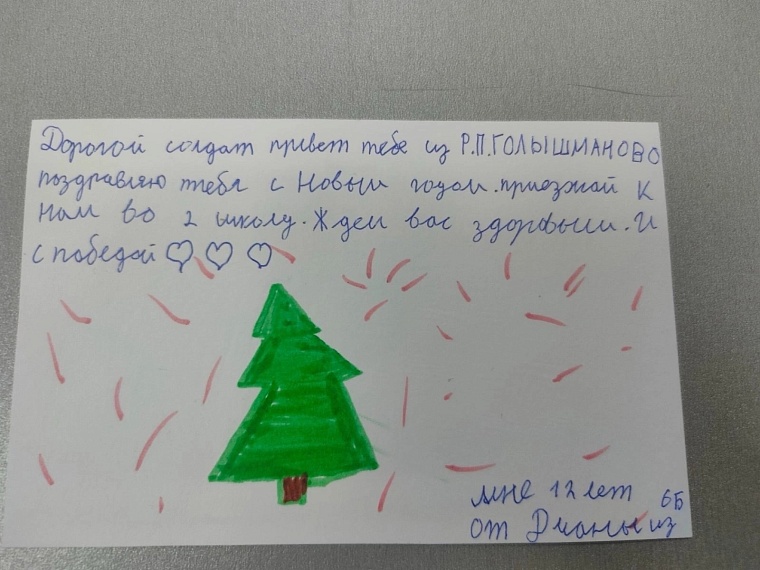 Дорогой солдат привет тебе из Р.П.ГОЛЫШМАНОВО
поздравляю тебя с Новым годом.приезжай К
нам во 2 школу.Ждем вас здоровыми.И
с победой ♡ ♡ ♡
мне 12 лет 6Б
от Дианы из